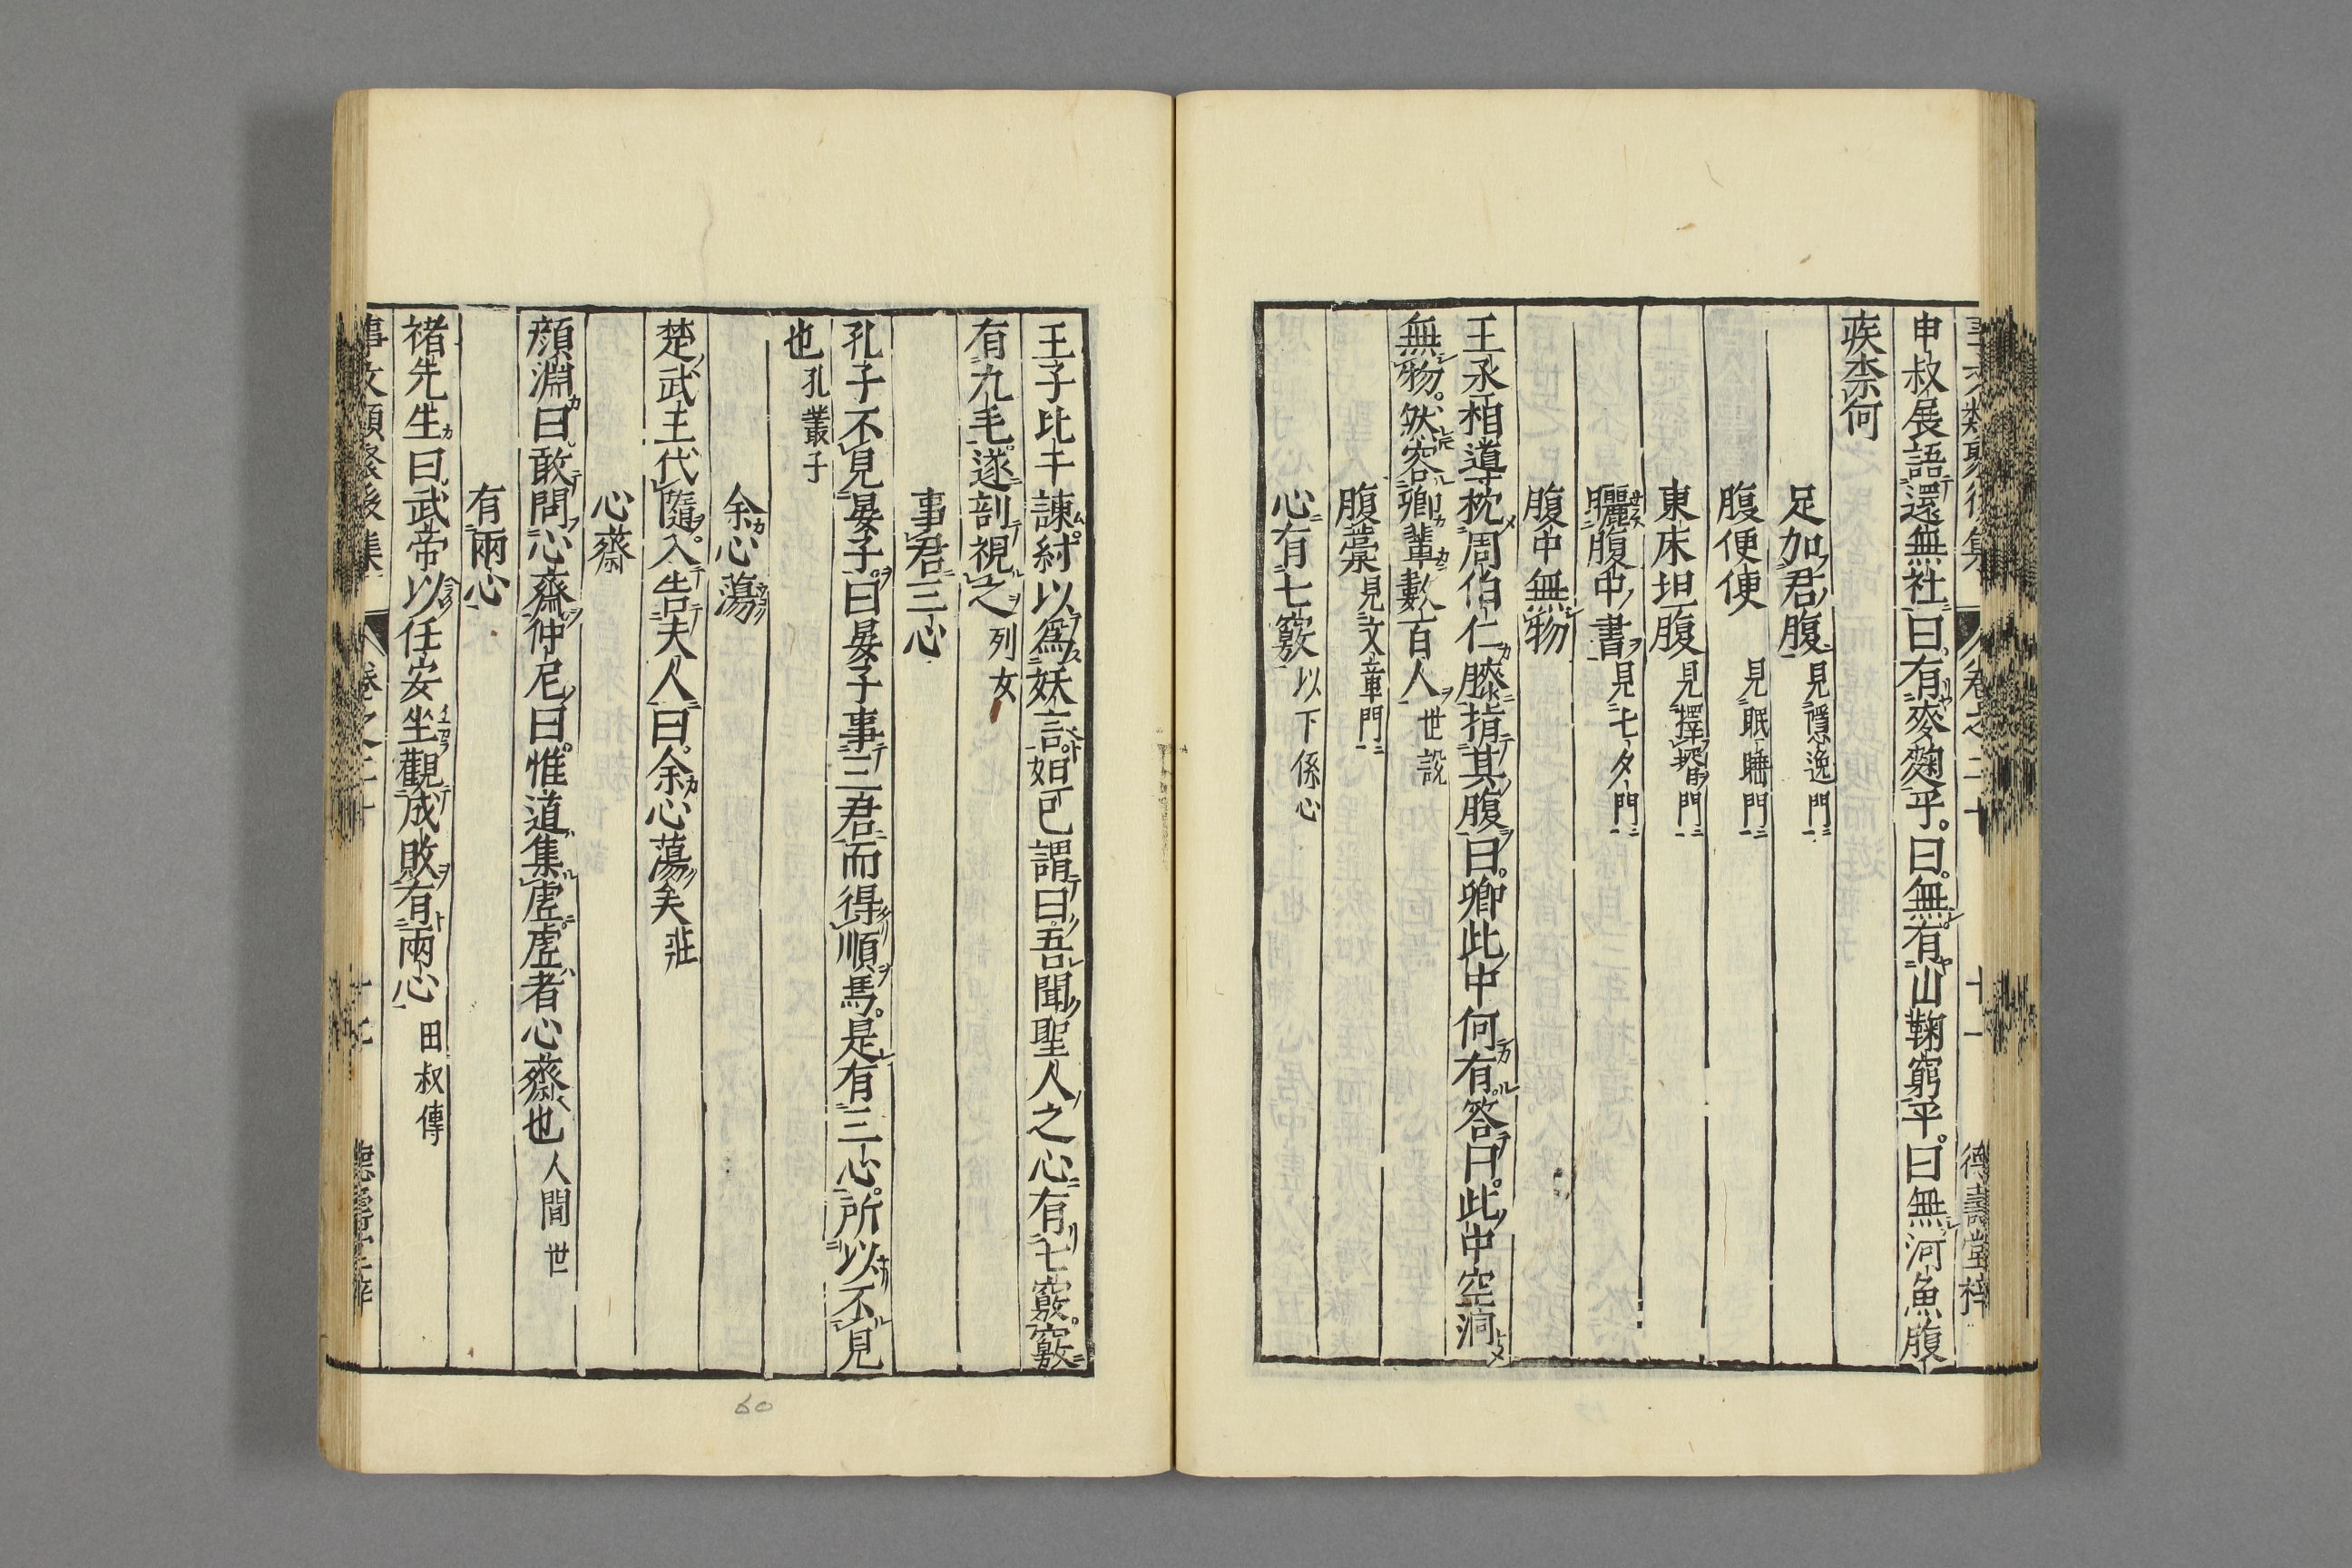 事文類聚後集 卷之二十 十一 德壽堂梓
申叔展語還無社曰有麥麴乎曰無有山鞠窮乎曰無河魚腹
疾柰何
足加君腹 見隱逸門
腹便便 見眠睡門
東床坦腹 見擇壻門
曬腹中書 見七夕門
腹中無物
王丞相導枕周伯仁膝指其腹曰卿此中何有答曰此中空洞
無物然容卿輩數百人 世說
腹藁 見文章門
心有七竅 以下係心
王子比干諫紂以爲妖言妲已謂曰吾聞聖人之心有七竅竅
有九毛遂剖視之 列女
事君三心
孔子不見晏子曰晏子事三君而得順焉是有三心所以不見
也 孔叢子
余心蕩
楚武王代隨入告夫人曰余心蕩矣 莊
心齋
顏淵曰敢問心齋仲尼曰惟道集虛虛者心齋也 人間世
有兩心
褚先生曰武帝以任安坐觀成敗有兩心 田叔傳
事文類聚後集 卷之二十 德壽堂梓
60